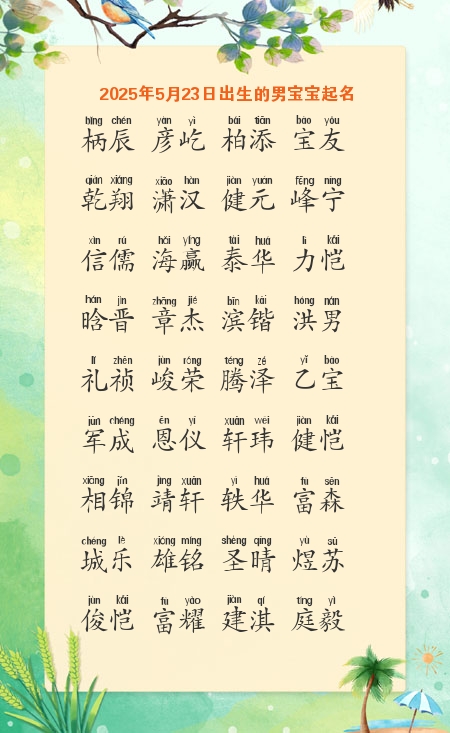 2025年5月23日出生的男宝宝起名
bǐng chén yàn yì bǎi tiān bǎo yǒu
柄辰 彦屹 柏添 宝友
qián xiáng xiāo hàn jiàn yuán fēng níng
乾翔 潇汉 健元 峰宁
xìn rú hǎi yíng tài huá lì kǎi
信儒 海赢 泰华 力恺
hán jìn zhāng jié bīn kǎi hóng nán
晗晋 章杰 滨锴 洪男
lǐ zhēn jùn róng téng zé yǐ bǎo
礼祯 峻荣 腾泽 乙宝
jūn chéng ēn yí xuān wěi jiàn kǎi
军成 恩仪 轩玮 健恺
xiāng jǐn jìng xuān yì huá fù sēn
相锦 靖轩 轶华 富森
chéng lè xióng míng shèng qíng yù sū
城乐 雄铭 圣晴 煜苏
jùn kǎi fù yào jiàn qí tíng yì
俊恺 富耀 建淇 庭毅